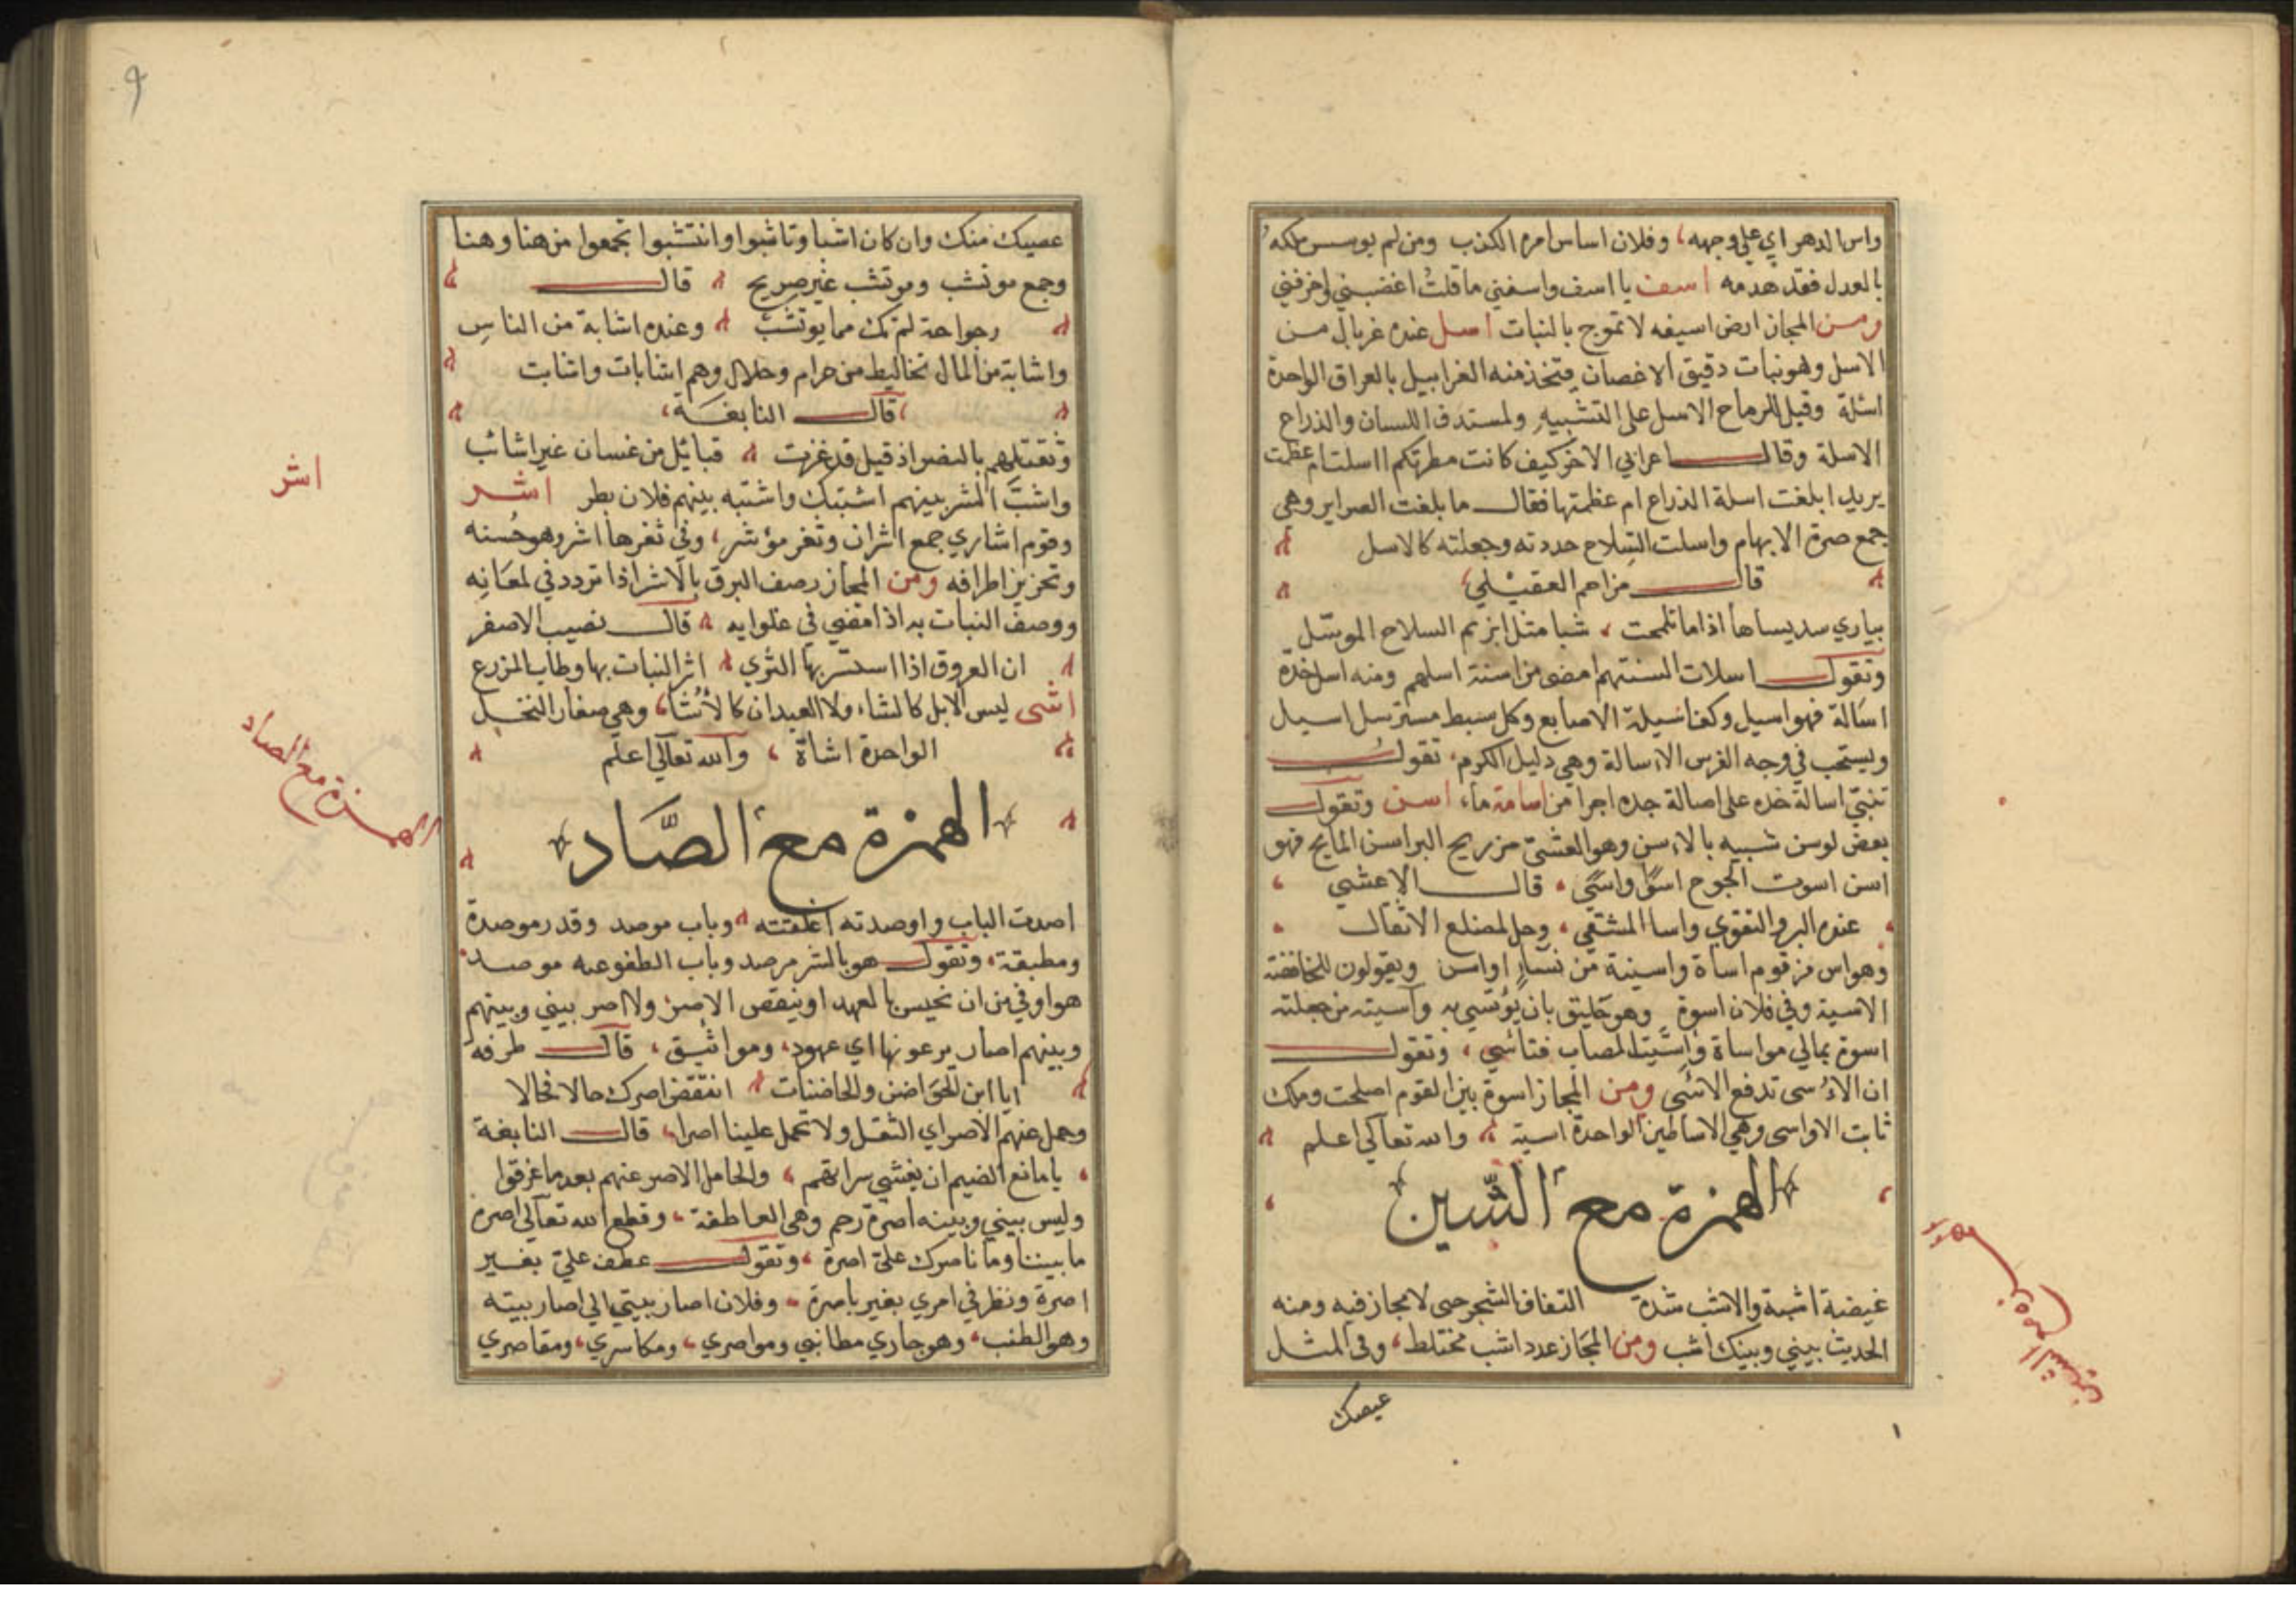 واس الدهر اي على وجهه، وفلان اساس امره الكذب ومن لم يوسس ملكه
بالعدل فقد هدمه اسف يا اسف واسفني ما قلت اغضبني واحزنني
ومن المجاز ارض اسيفه لا تموج بالنبات اسل عنده غربال من
الاسل وهو نبات دقيق الاغصان يتخذ منه الغرابيل بالعراق الواحدة
اسلة وقيل للرماح الاسل على التشبيه ولمستدق اللسان والذراع
الاسلة وقال اعرابي الاخر كيف كانت مطرتكم ااسلت ام عظمت
يريد ابلغت اسلة الذراع ام عظمتها فقال ما بلغت الصراير وهي
جمع صرة الابهام واسلت السلاح حددته وجعلته كالاسل
قال مزاحم العقيلي
يباري سديساها اذا ما تلمحت شبا مثل ابزيم السلاح الموسل
وتقول اسلات السنتهم امضى من اسنة اسلهم ومنه اسل خده
اسالة فهو اسيل وكف اسيلة الاصابع وكل سبط مسترسل اسيل
ويستحب في وجه الفرس الاسالة وهي دليل الكرم، تقول
تنبي اسالة خده على اصالة جده اجرا من اسامة ماء اسن وتقول
بعض لوسن شبيه بالاسن وهو الغشي من ريح البر اسن المايح فهو
اسن اسوت الجوح اسوا واسى، قال الاعشي
عنده البر والتقوي واسا المشتقي، وحمل لمضلع الاثقال
وهو اس من قوم اساة واسينة من نسا اواس ويقولون للخافضة
الاسية وفي فلان اسوة وهو خليق بان يؤتسي به وآسيته من جعلته
اسوة بمالي مواساة واسيت المصاب فتاسي، وتقول
ان الاسى تدفع الاسى ومن المجاز اسوة بين القوم اصلحت وملك
ثابت الاواسى وهي الاساطين الواحدة اسية والله تعالى اعلم
الهمزة مع الشين
غيضة اشبة والاشب شدة التفاف الشجر حتى لا مجاز فيه ومنه
الحديث بيني وبينك اشب ومن المجاز عدد اشب مختلط، وفي المثل
عيصك
عصيك منك وان كان اشبا وتاشبوا وانتشبوا تجمعوا من هنا وهنا
وجمع موتشب وموتشب غير صريح قال
رجواحة لم تك مما يوتشب وعنده اشابة من الناس
واشابة من المال تخاليط من حرام وحلال وهم اشابات واشابت
قال النابغة
وثقت لهم بالنصر اذ قيل قد غزت قبائل من غسان غير اشائب
واشب الشر بينهم اشتبك واشتبه بينهم فلان بطر اشر
وقوم اشاري جمع اشران وثغر مؤشر، وفي ثغرها اشر وهو حسنه
وتحزيز اطرافه ومن المجاز وصف البرق بالاشر اذا تردد في لمعانه
ووصف النبات به اذا مضي في غلوايه قال نصيب الاصفر
ان العروق اذا استسر بها الثري اشر النبات بها وطاب المزرع
اشى ليس الابل كالشاء ولا العيدان كالأشا، وهي صغار النخل
الواحدة اشاة، والله تعالي اعلم
الهمزة مع الصاد
اصدت الباب واوصدته اغلقته وباب موصد وقدر موصدة
ومطبقة، وتقول هو بالشر مرصد وباب الطفو عنه موصد
هو اوفي من ان يخيس بالعهد او ينقض الاصر ولا اصر بيني وبينهم
وبينهم اصار يرعونها اي عهود، ومواثيق، قال طرفه
ايا ابن الحواضن والحاضنات اتنقض اصرك حالا فحالا
وحمل عنهم الاصر اي الثقل ولا تحمل علينا اصرا، قال النابغة
يا مانع الضيم ان يغشي سراتهم، والحامل الاصر عنهم بعد ما غرقوا
وليس بيني وبينه اصرة رحم وهي العاطفة، وقطع الله تعالى اصرة
ما بيننا وما ناصرك علي اصرة، وتقول عطف علي بغير
اصرة ونظر في امري بغير باصرة، وفلان اصار بيتي الي اصار بيته
وهو الطنب، وهو جاري مطانبي ومواصري، ومكاسري، ومقاصري
اشر
الهمزة مع الصاد